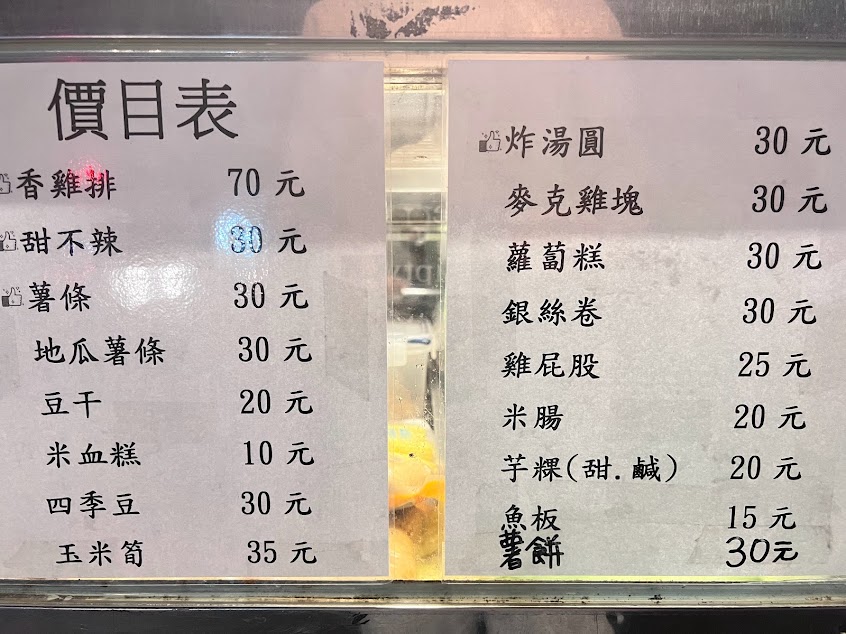 價目表
香雞排 70 元
甜不辣 30 元
薯條 30 元
地瓜薯條 30 元
豆干 20 元
米血糕 10 元
四季豆 30 元
玉米筍 35 元
炸湯圓 30 元
麥克雞塊 30 元
蘿蔔糕 30 元
銀絲卷 30 元
雞屁股 25 元
米腸 20 元
芋粿(甜.鹹) 20 元
魚板 15 元
薯餅 30元